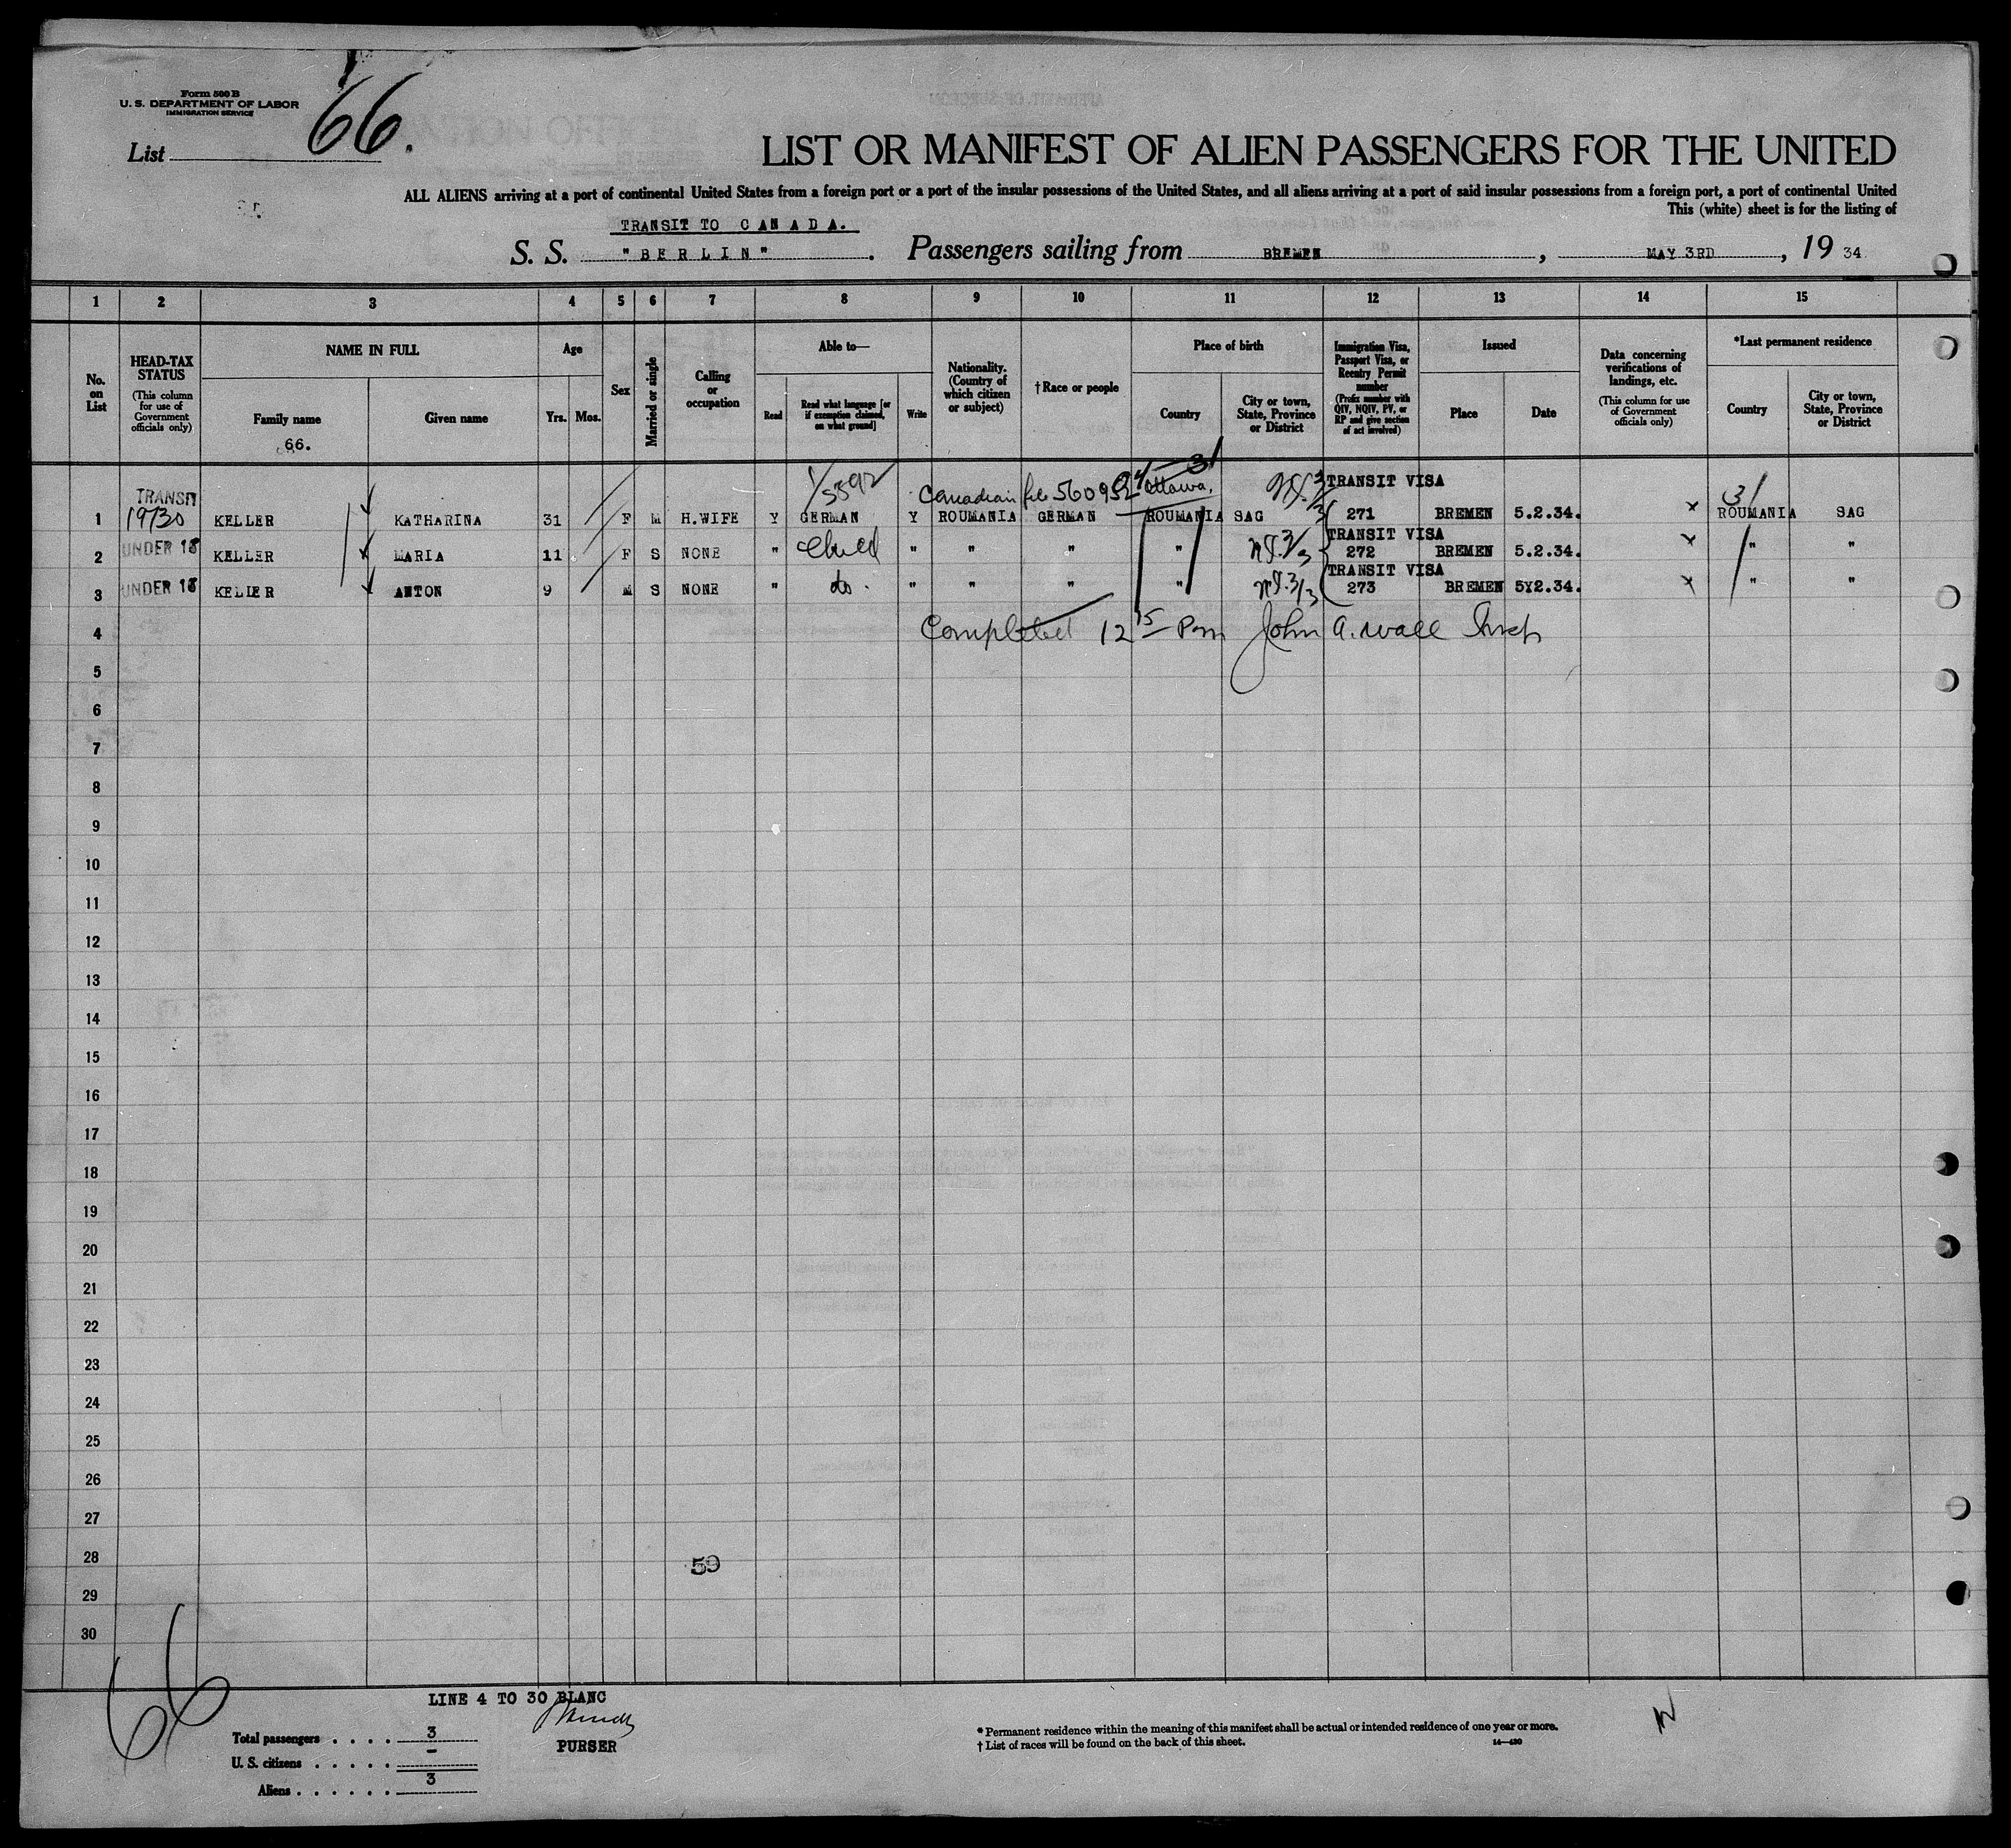 Form 500 B
U. S. DEPARTMENT OF LABOR
IMMIGRATION SERVICE
List 66.
LIST OR MANIFEST OF ALIEN PASSENGERS FOR THE UNITED
ALL ALIENS arriving at a port of continental United States from a foreign port or a port of the insular possessions of the United States, and all aliens arriving at a port of said insular possessions from a foreign port, a port of continental United
This (white) sheet is for the listing of
TRANSIT TO CANADA.
S. S. "BERLIN". Passengers sailing from BREMEN, MAY 3RD, 19 34
1 2 3 4 5 6 7 8 9 10 11 12 13 14 15
No. on List
HEAD-TAX STATUS (This column for use of Government officials only)
NAME IN FULL
Family name
66.
Given name
Age
Yrs. Mos.
Sex
Married or single
Calling or occupation
Able to—
Read
Read what language [or if exemption claimed, on what ground]
Write
Nationality. (Country of which citizen or subject)
†Race or people
Place of birth
Country
City or town, State, Province or District
Immigration Visa, Passport Visa, or Reentry Permit number (Prefix number with QIV, NQIV, PV, or RP and give section of act involved)
Issued
Place
Date
Data concerning verifications of landings, etc. (This column for use of Government officials only)
*Last permanent residence
Country
City or town, State, Province or District
TRANSIT Canadian file 56095 Ottawa. TRANSIT VISA 31
1 KELLER KATHARINA 31 F M H.WIFE Y GERMAN Y ROUMANIA GERMAN ROUMANIA SAG 271 BREMEN 5.2.34. x ROUMANIA SAG
TRANSIT VISA
2 UNDER 18 KELLER MARIA 11 F S NONE " Child " " " " 272 BREMEN 5.2.34. x " "
TRANSIT VISA
3 UNDER 18 KELIER ANTON 9 M S NONE " do. " " " " 273 BREMEN 5Y2.34. x " "
4 Completed 12 15 Pm John A. Wall Insp
5
6
7
8
9
10
11
12
13
14
15
16
17
18
19
20
21
22
23
24
25
26
27
28 59
29
30
66
LINE 4 TO 30 BLANC
Total passengers . . . . 3
PURSER
U. S. citizens . . . . . –
Aliens . . . . . . 3
* Permanent residence within the meaning of this manifest shall be actual or intended residence of one year or more.
† List of races will be found on the back of this sheet.
14—430